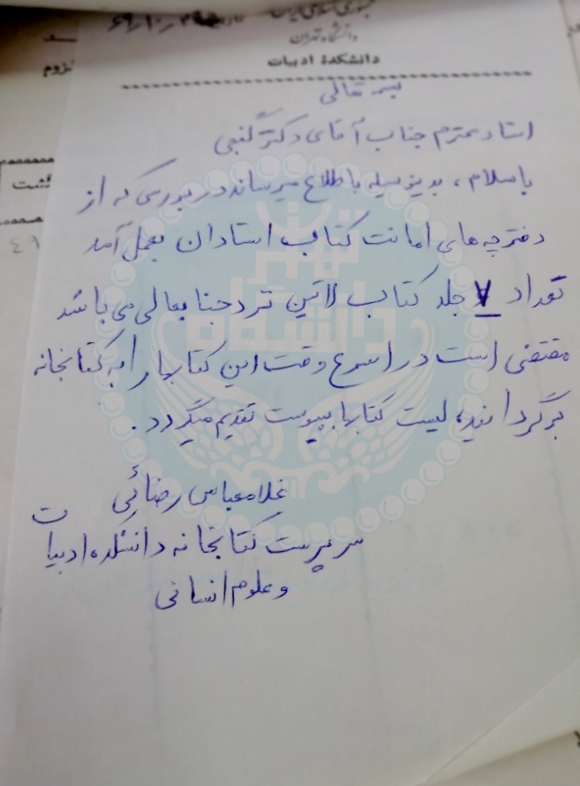 جمهوری اسلامی ایران
دانشگاه تهران
دانشکدهٔ ادبیات
بسمه تعالی
استاد محترم جناب آقای دکتر گنجی
باسلام، بدینوسیله باطلاع میرساند در بررسی که از
دفترچه های امانت کتاب استادان بعمل آمد
تعداد ۷ جلد کتاب لاتین نزد جنابعالی می باشد
مقتضی است در اسرع وقت این کتابها را به کتابخانه
برگردانید، لیست کتابها بپیوست تقدیم میگردد.
غلامعباس رضائی
سرپرست کتابخانه دانشکده ادبیات
و علوم انسانی